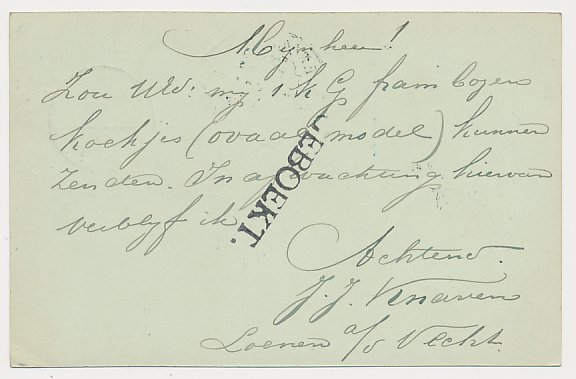 Mynheer!
Zou UEd: my 1 k G frambozen
koekjes (ovaal model) kunnen
zenden. In afwachting hiervan
verblyf ik
GEBOEKT.
Achtend.
J. J.
Loenen a/d Vecht.